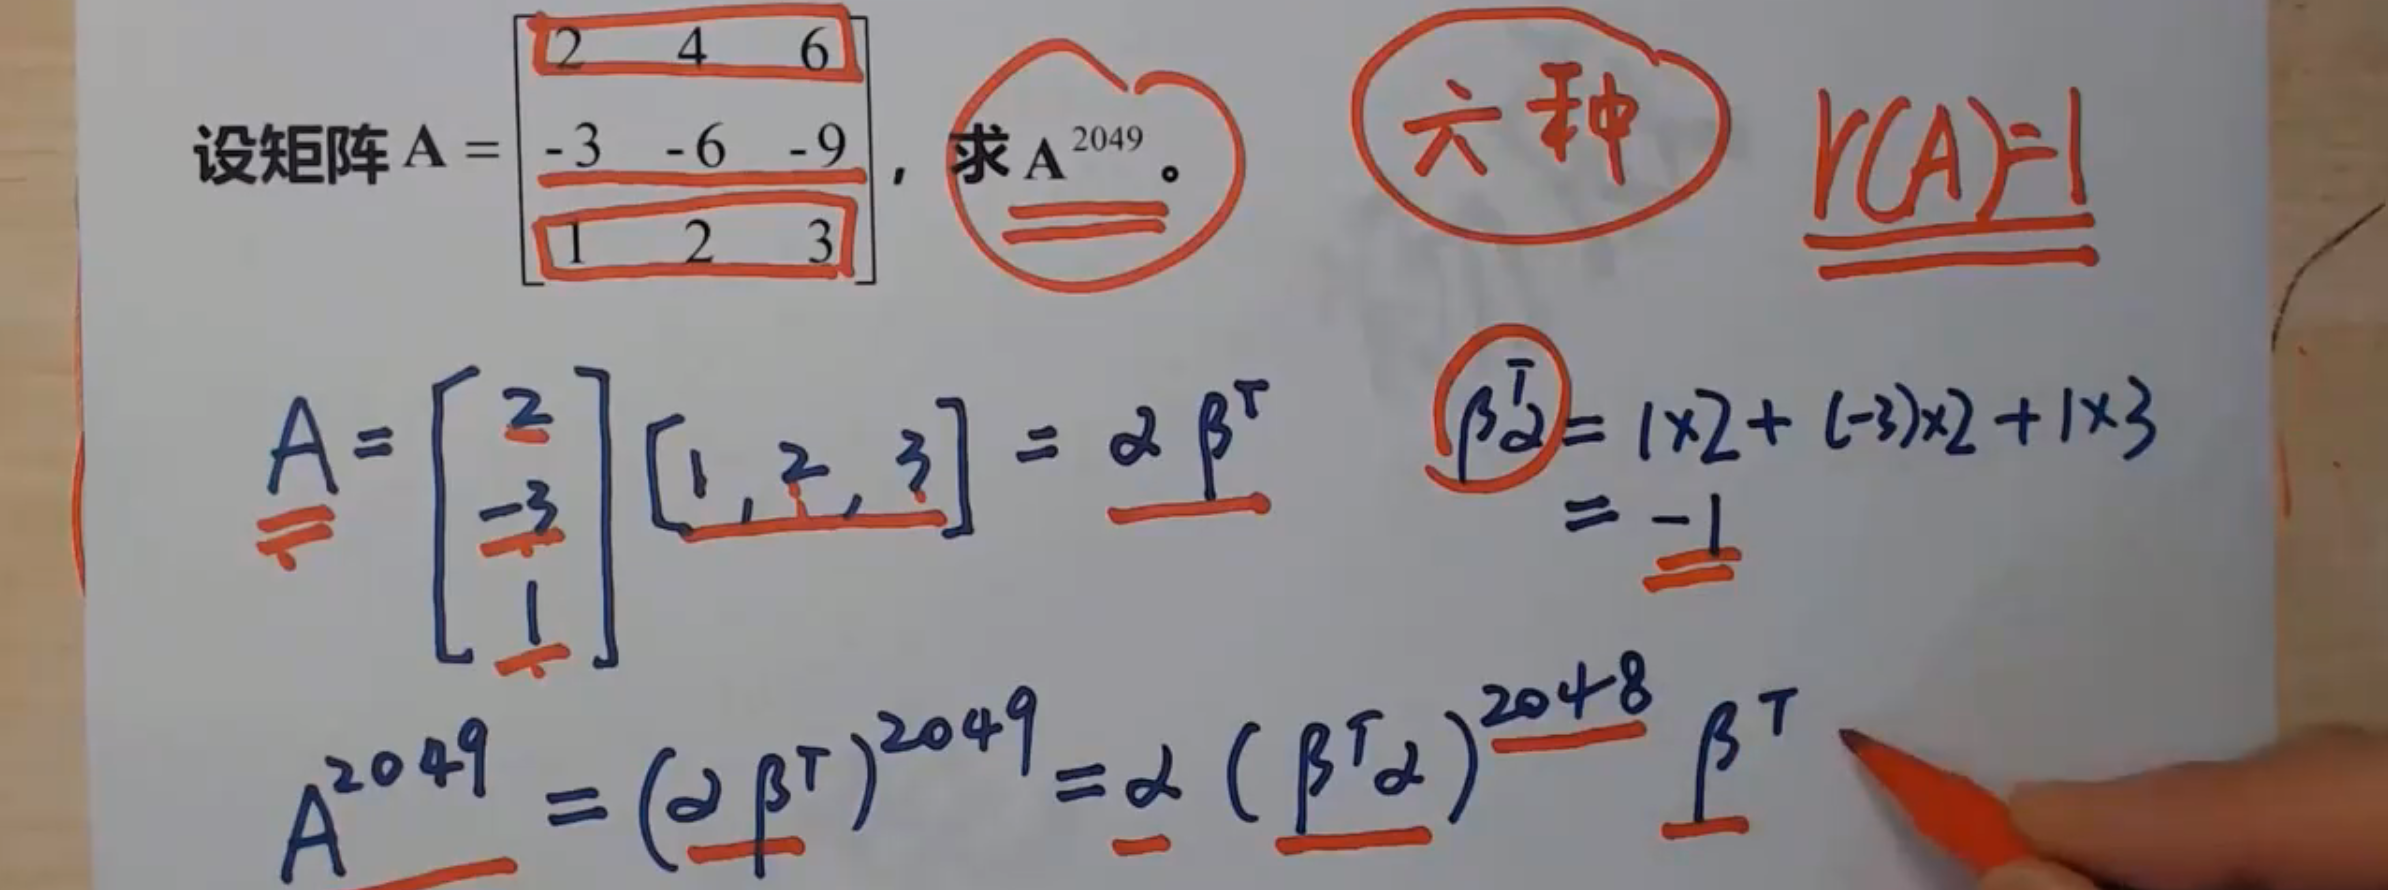 2 4 6
设矩阵 A = -3 -6 -9 , 求 A^2049 。
1 2 3
六种
r(A)=1
A = [2 -3 1] [1, 2, 3] = α β^T
β^T α = 1×2 + (-3)×2 + 1×3
= -1
A^2049 = (α β^T)^2049 = α (β^T α)^2048 β^T